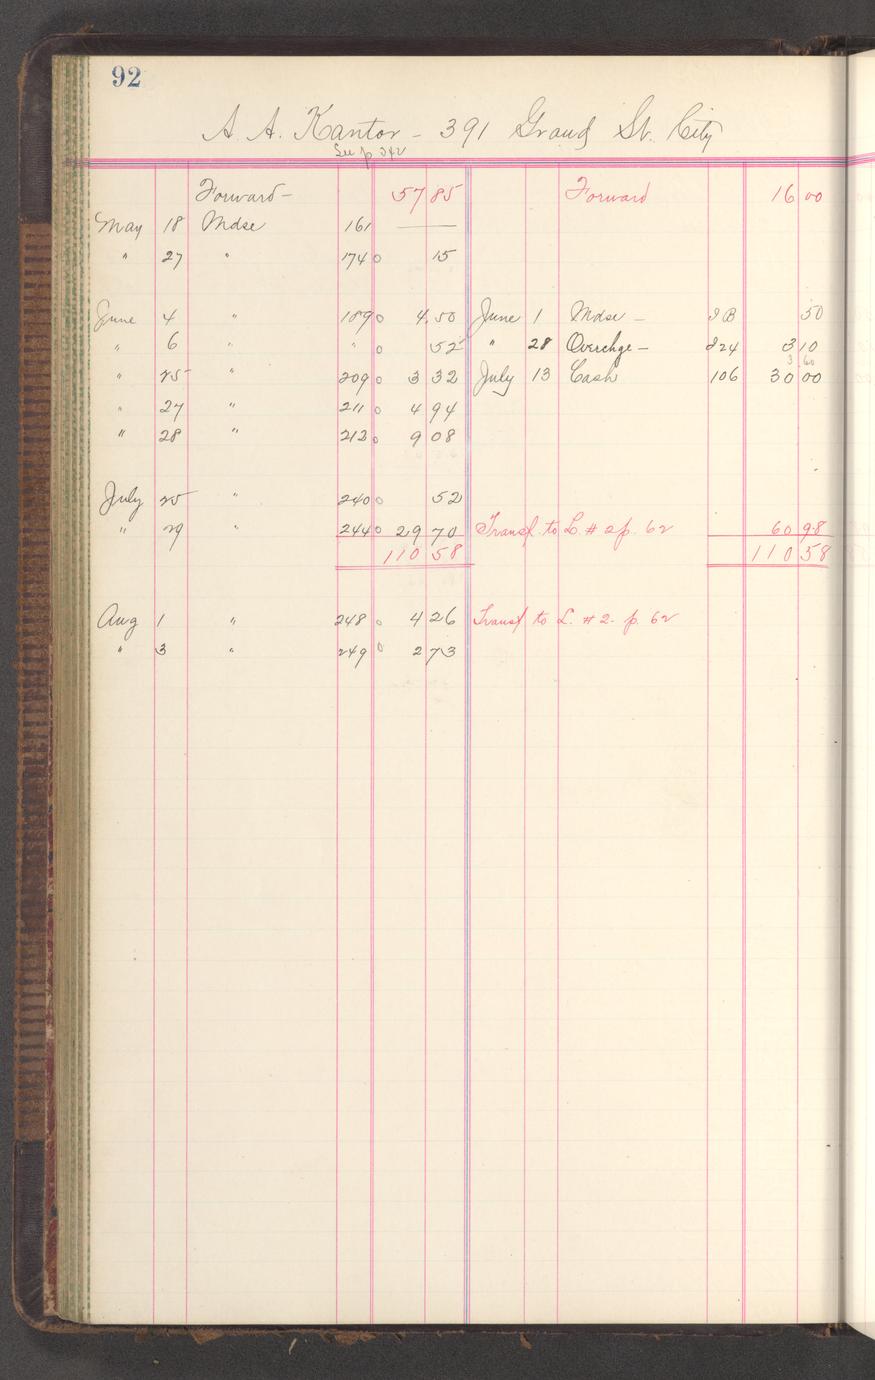 92
A. A. Kantor - 391 Grand St. City
See p 342
Forward - 57 85 Forward 16 00
May 18 Mdse 161 —
" 27 " 174 0 15
June 4 " 189 0 4.50 June 1 Mdse - 50
" 6 " " 0 52 " 28 Overchge - 224 3 10
3 60
" 25 " 209 0 3 32 July 13 Cash 106 30 00
" 27 " 211 0 4 94
" 28 " 212 0 9 08
July 25 " 240 0 52
" 29 " 244 0 29 70 Transf. to L. # 2 p. 62 60 98
110 58 110 58
Aug 1 " 248 0 4 26 Transf to L. # 2. p. 62
" 3 " 249 0 2 73